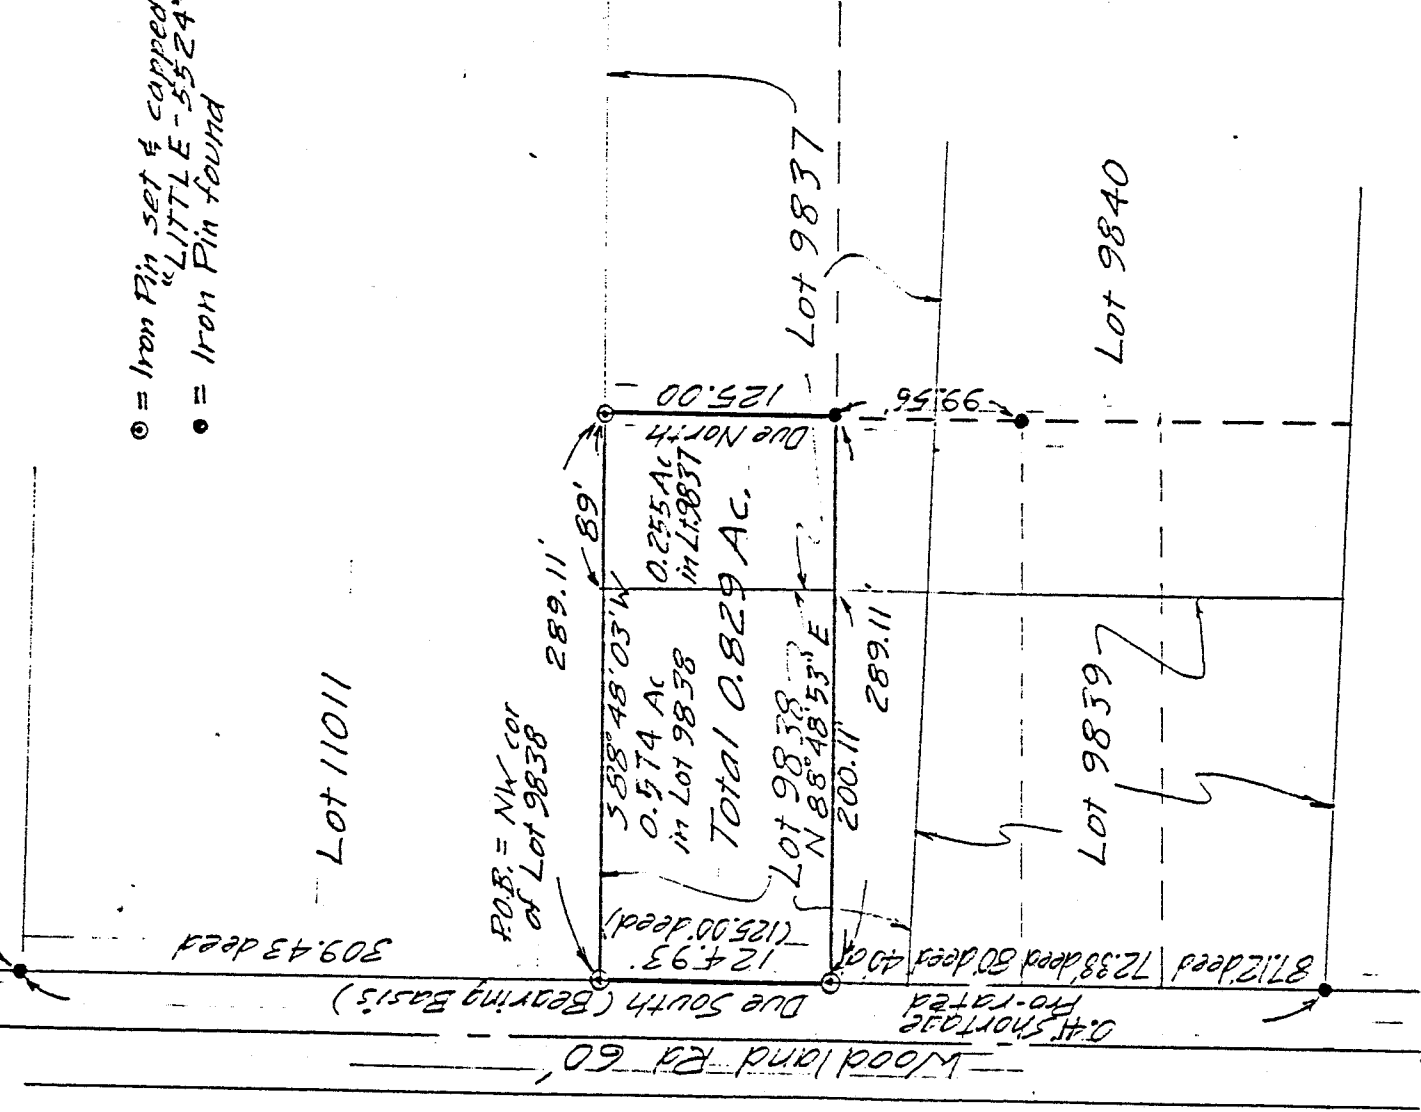 ⊙ = Iron Pin set & capped
"LITTLE-5524"
● = Iron Pin found
Lot 11011
309.43 deed
P.O.B. = NW cor
of Lot 9838
289.11'
89'
S 88° 48' 03" W
0.574 Ac
in Lot 9838
0.255 Ac
in Lt. 9837
Total 0.829 Ac.
Due North
125.00
Lot 9838
N 88° 48' 53" E
200.11'
289.11'
Lot 9837
99.56'
Lot 9840
Lot 9839
124.93'
(125.00' deed)
Due South (Bearing Basis)
40' deed
80' deed
72.38' deed
87.12' deed
0.41' Shortage
Pro-rated
Woodland Rd 60'